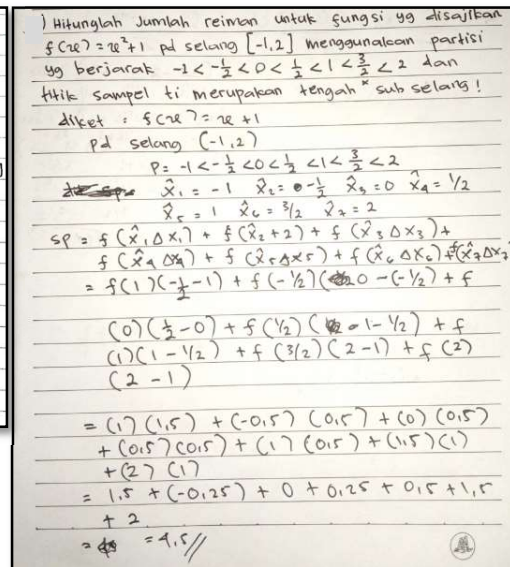 ) Hitunglah Jumlah reiman untuk fungsi yg disajikan
f(x) = x²+1 pd selang [-1,2] menggunakan partisi
yg berjarak -1 < -1/2 < 0 < 1/2 < 1 < 3/2 < 2 dan
titik sampel ti merupakan tengah" sub selang !
diket : f(x) = x + 1
pd selang (-1,2)
P= -1 < -1/2 < 0 < 1/2 < 1 < 3/2 < 2
x̂₁ = -1 x̂₂ = -1/2 x̂₃ = 0 x̂₄ = 1/2
x̂₅ = 1 x̂₆ = 3/2 x̂₇ = 2
SP = f (x̂₁ Δx₁) + f (x̂₂ + 2) + f (x̂₃ Δx₃) +
f (x̂₄ Δx₄) + f (x̂₅ Δx₅) + f (x̂₆ Δx₆) + f(x̂₇ Δx₇
= f(1) (-1/2 -1) + f(-1/2) ( 0 - (-1/2) + f
(0) (1/2 - 0) + f (1/2) ( 1 - 1/2) + f
(1) (1 - 1/2) + f (3/2) (2 - 1) + f (2)
(2 - 1)
= (1) (1,5) + (-0,5) (0,5) + (0) (0,5)
+ (0,5) (0,5) + (1) (0,5) + (1,5) (1)
+ (2) (1)
= 1,5 + (-0,25) + 0 + 0,25 + 0,5 + 1,5
+ 2
= = 4,5//